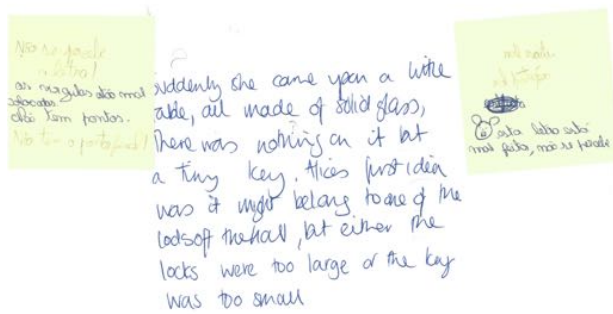 Não se percebe
as virgulas estão mal
colocadas.
não tem pontos.
suddenly she came upon a little
table, all made of solid glass,
There was nothing on it but
a tiny key. Alices first idea
was it might belong to one of the
locks of the hall, but either the
locks were too large or the key
was too small
esta letra está
mal feita, não se percebe